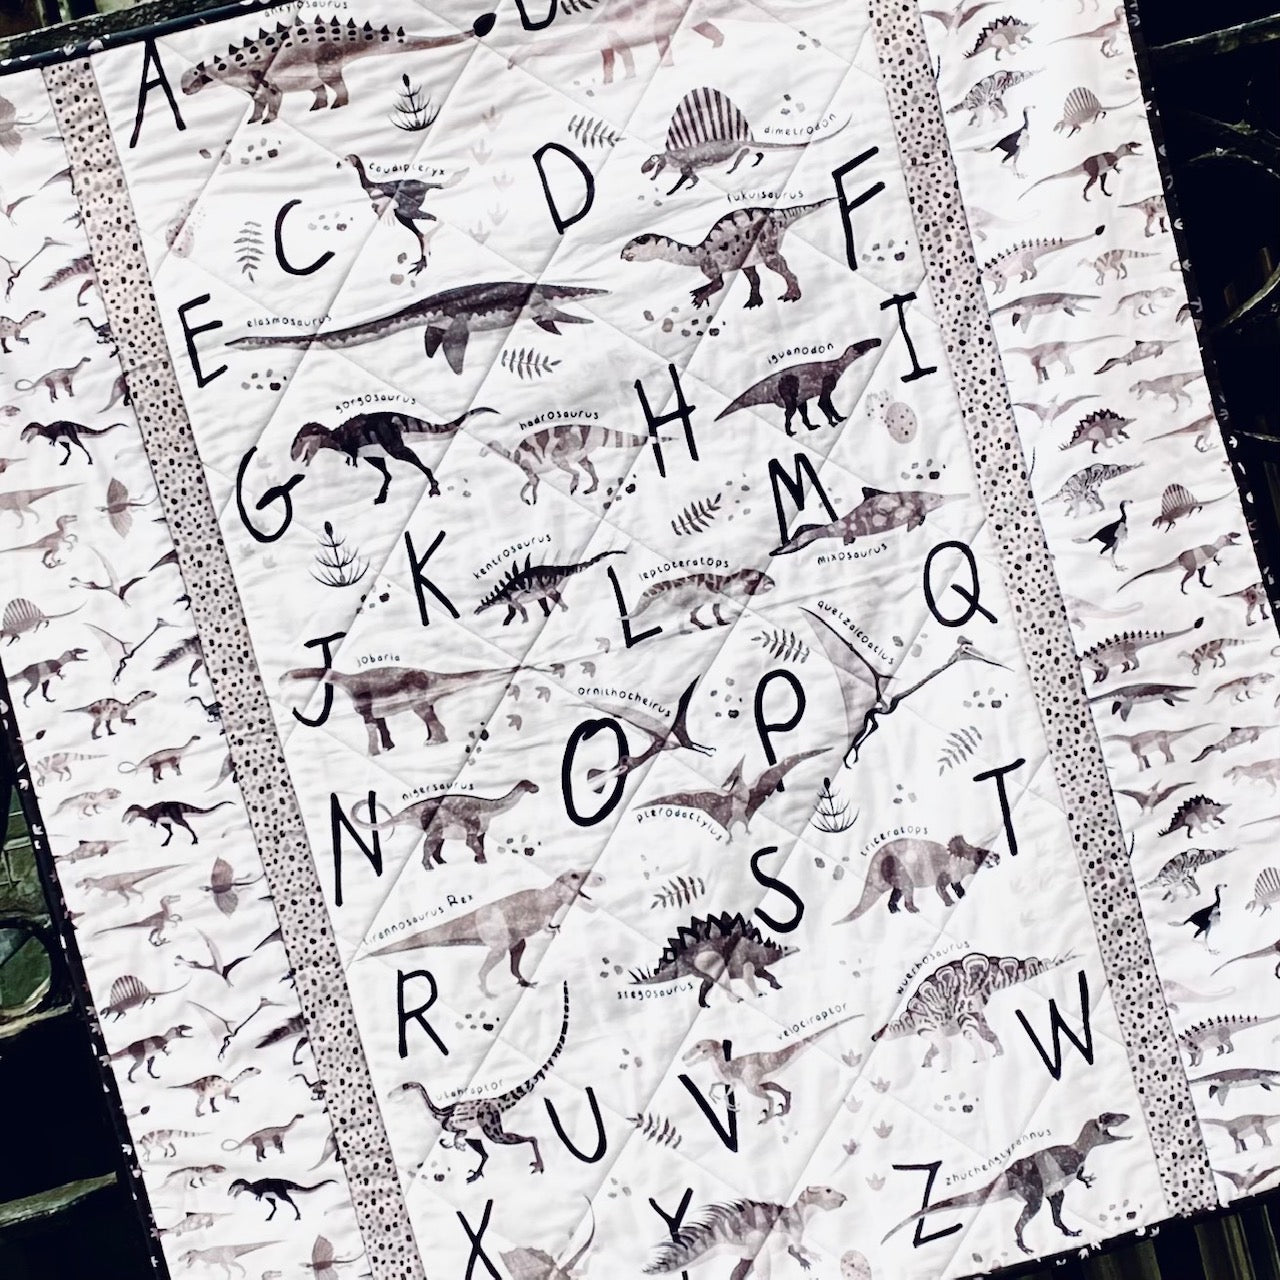 ankylosaurus
A
B
caudipteryx
C
D
dimetrodon
fukuisaurus
F
E
elasmosaurus
I
iguanodon
gorgosaurus
G
hadrosaurus
H
M
mixosaurus
kentrosaurus
K
leptoceratops
L
quetzalcoatlus
Q
J
jobaria
ornithocheirus
O
P
pterodactylus
N
nigersaurus
T
triceratops
S
stegosaurus
tirannosaurus Rex
R
wuerhosaurus
W
velociraptor
V
utahraptor
U
X
Y
Z
zhuchengtyrannus